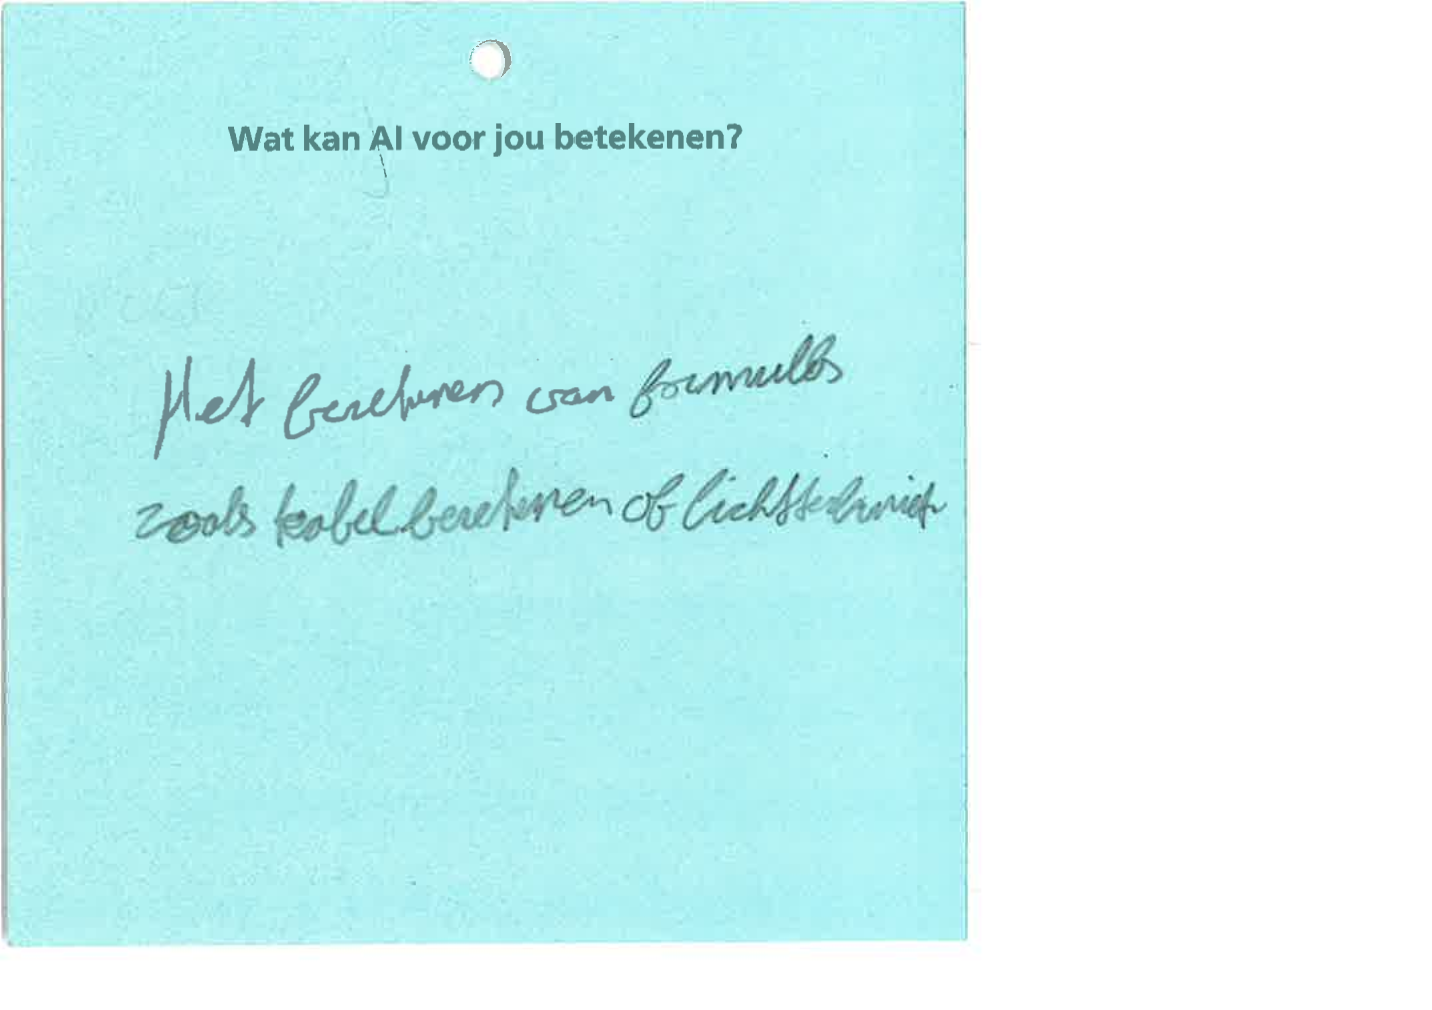 Wat kan AI voor jou betekenen?
Het berekenen van formules
zoals kabel berekenen of lichttechniek